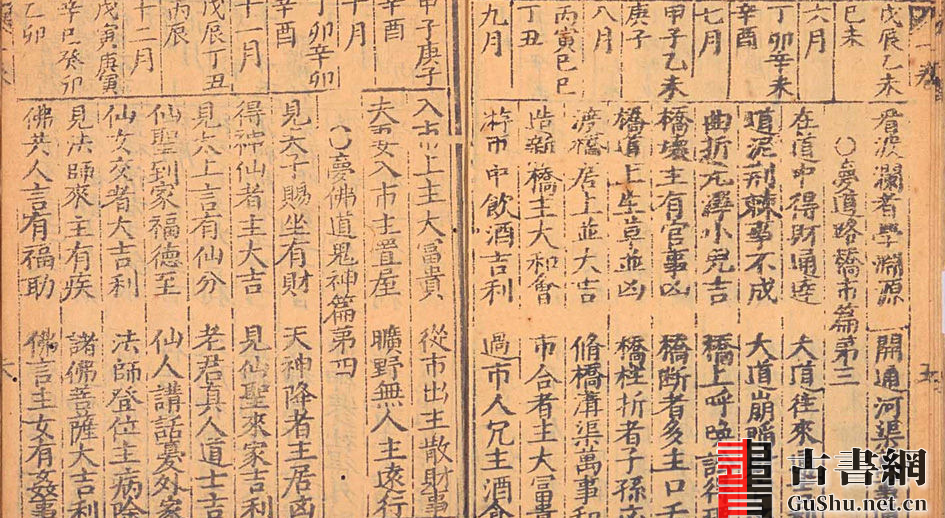 戊辰乙未
己未
六月
丁卯辛未
辛酉
七月
甲子乙未
庚子
八月
丙寅己巳
丁丑
九月
看波瀾者學淵源 開通河渠
夢道路橋市篇第三
在道中得財通達 大道往來
道泥荊棘事不成 大道崩陷
曲折 小兒吉 橋上呼喚
橋壞主有官事凶 橋斷者多主口舌
橋道上生草並凶 橋柱折者子孫
渡橋居上並大吉 脩橋溝渠萬事和
造新橋主大和會 市合者主大富貴
遊市中飲酒吉利 過市人兄主酒食
甲子庚子
辛酉
十月
丁卯辛卯
辛酉
十一月
戊辰丁丑
丙辰
十二月
戊寅庚寅
辛巳癸卯
乙卯
入市上主大富貴 從市出主散財事
夫妻入市主置產 曠野無人主遠行
夢佛道鬼神篇第四
見天子賜坐有財 天神降者主居凶
得神仙者主大吉 見仙聖來家吉利
見太上言有仙分 老君真人道士吉
仙聖到家福德至 仙人講話憂外家
仙女交者大吉利 法師登位主病
見法師來主有疾 諸佛菩薩大吉利
佛共人言有福助 佛言主女有姦事
書
古書網
GuShu.net.cn